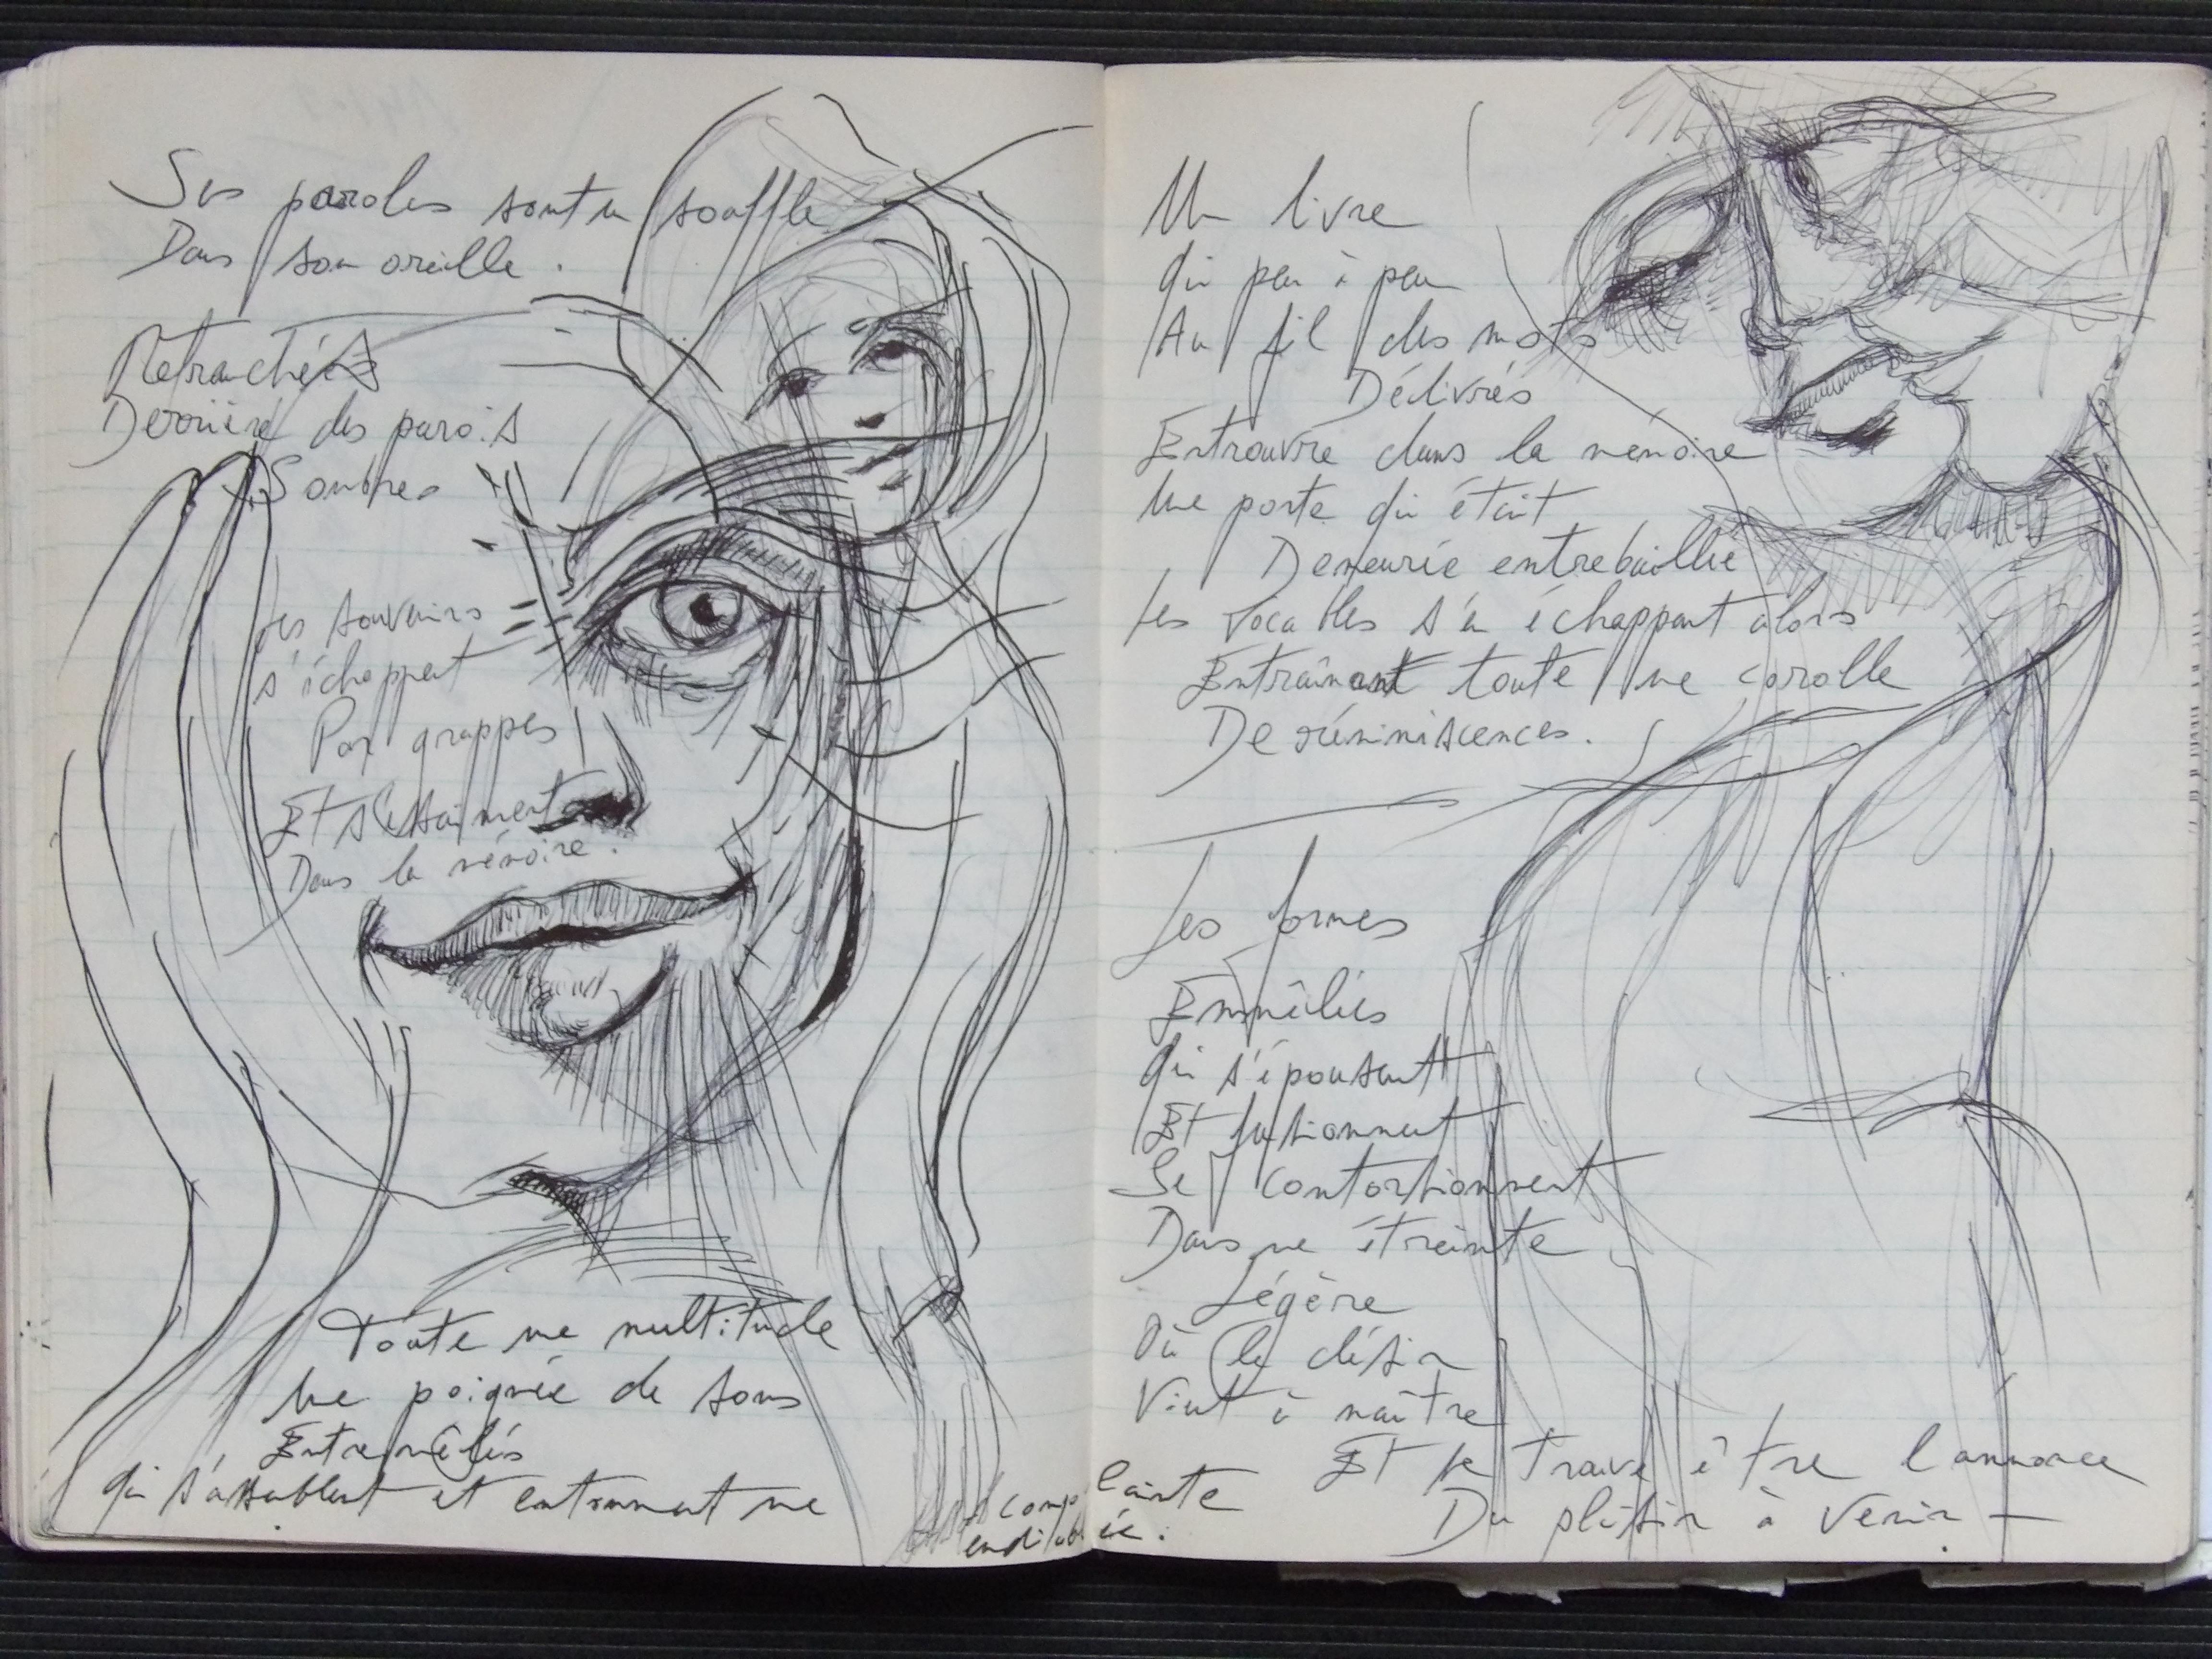 Ses paroles sont un souffle
Dans son oreille.
Retranchées
Derrière des parois
Sombres
Les souvenirs
s'échappent
Par grappes
Et s'essaiment
Dans la mémoire.
Toute une multitude
Une poignée de sons
Entremêlés
Qui s'assemblent et entonnent une complainte
endiablée.
Un livre
Qui peu à peu
Au fil des mots
Délivrés
Entrouvre dans la mémoire
Une porte qui était
Demeurée entrebaillée
Les vocables s'en échappant alors
Entraînant toute une corolle
De réminiscences.
Les formes
Emmêlées
Qui s'épousent
Et fusionnent
Se contortionnent
Dans une étreinte
Légère
Où le désir
Vient à naître
Et se trouve être l'annonce
Du plaisir à venir —